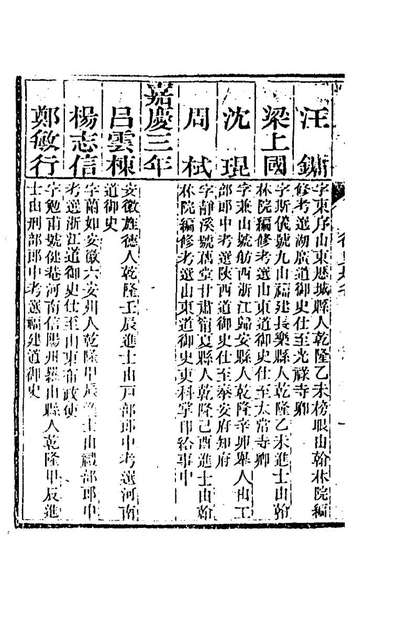 汪鏞
字東序山東歷城縣人乾隆乙未榜眼由翰林院編
修考選湖廣道御史仕至光祿寺卿
梁上國
字斯儀號九山福建長樂縣人乾隆乙未進士由翰
林院編修考選山東道御史仕至太常寺卿
沈琨
字兼山號舫西浙江歸安縣人乾隆辛卯舉人由工
部郎中考選陝西道御史仕至泰安府知府
周栻
字靜溪號蓮堂甘肅甯夏縣人乾隆己酉進士由翰
林院編修考選山東道御史吏科掌印給事中
嘉慶三年
呂雲棟
安徽旌德人乾隆壬辰進士由戶部郎中考選河南
道御史
楊志信
字蘭如安徽六安州人乾隆甲辰進士由禮部郎中
考選浙江道御史仕至山東布政使
鄭敏行
字勉南號健菴河南信陽州羅山縣人乾隆甲辰進
士由刑部郎中考選福建道御史